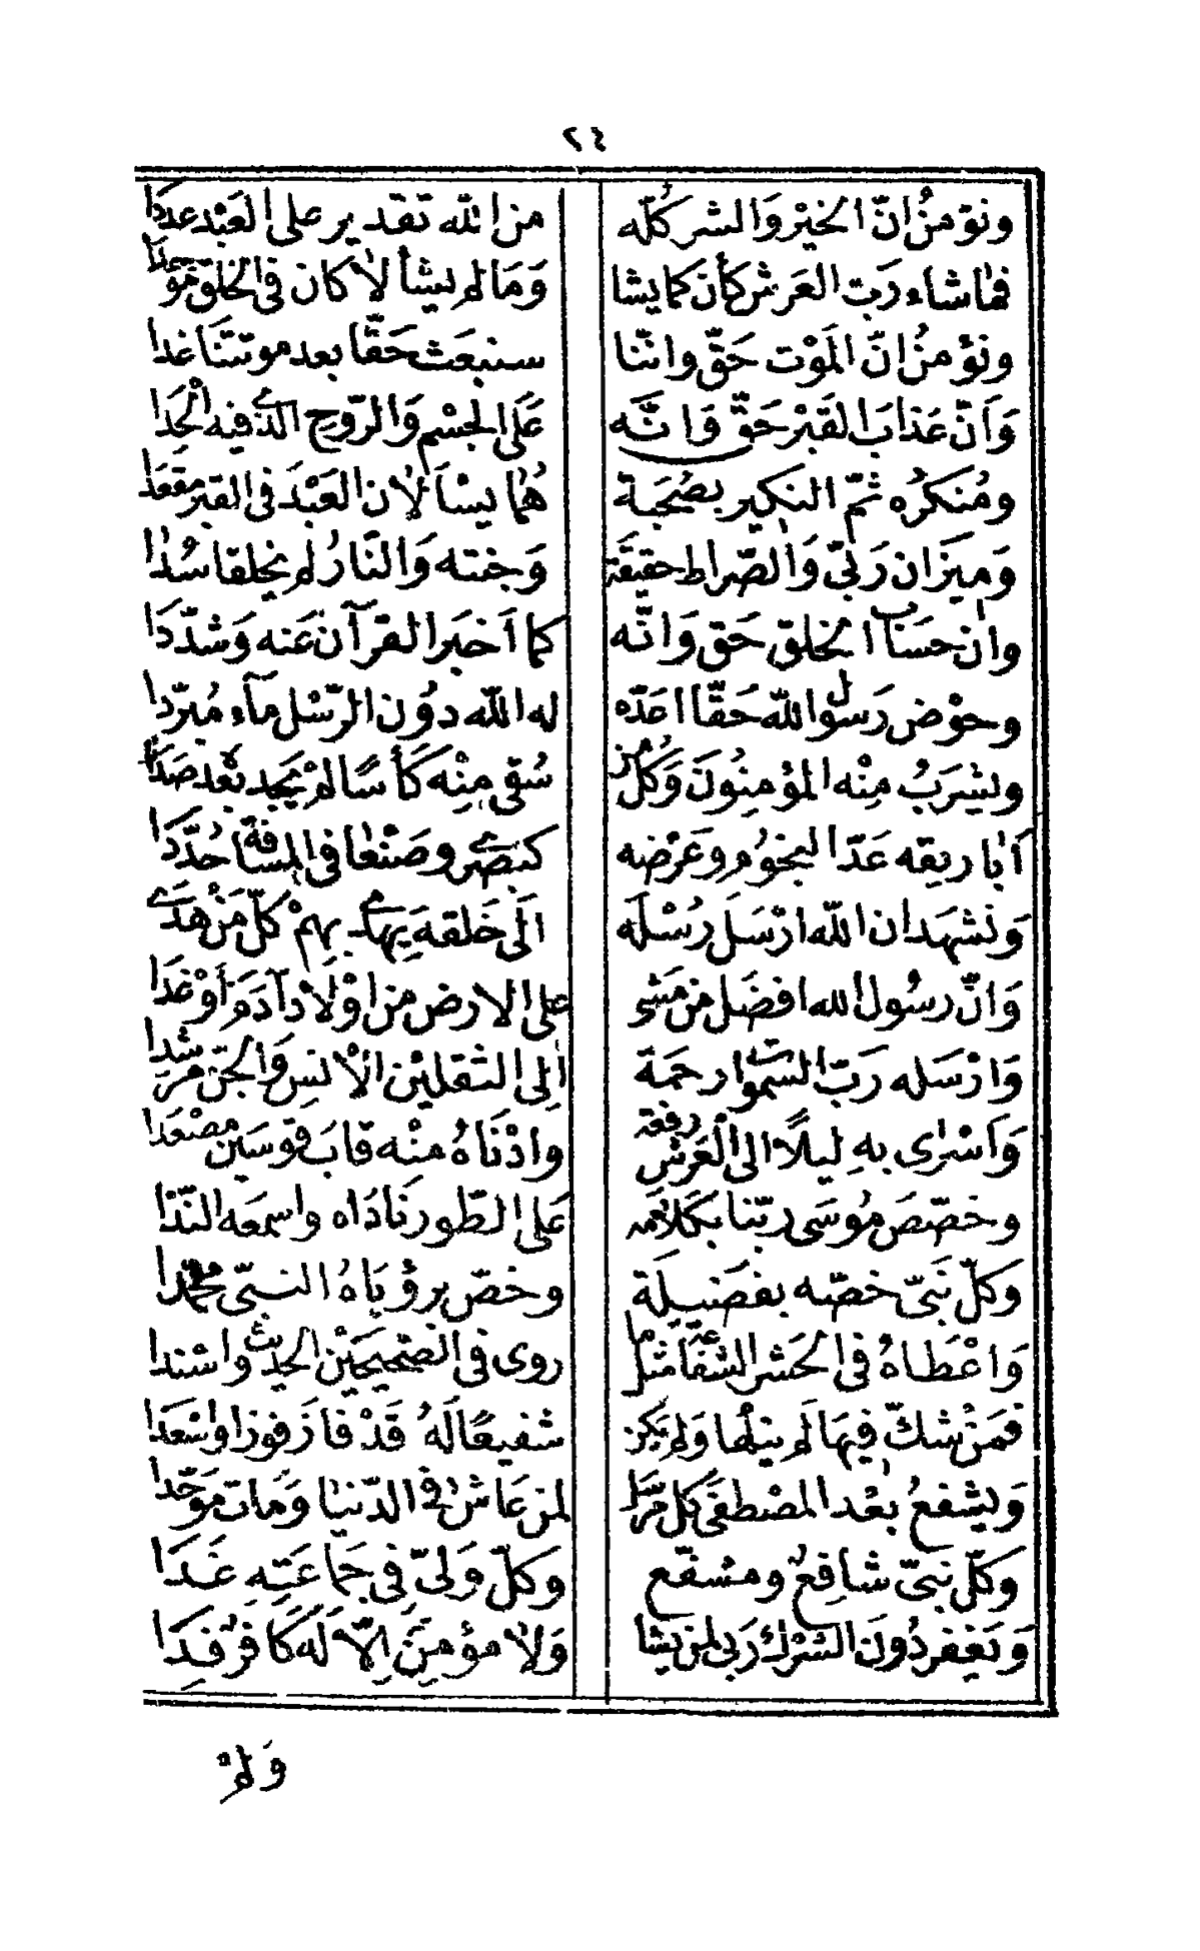 ٢٤
ونؤمنُ انّ الخيْر وَالشر كُلّه من الله تقدير على العَبْد عددَا
فمٰا شاء رَبّ العَرش كأن كما يشا وَمَا لم يشأ لاٰ كان فى الخلق
ونؤمنُ انّ المَوْت حَقّ واننا سنبعَث حَقّا بعد موتتنَا غدا
وَاَنّ عَذابَ القَبْر حَقّ وَانَّه عَلَى الجسْم وَالرّوح الذے فيه اُلْحِدَا
ومُنكرُه ثمّ النكِير بصُحَبة هُمٰا يسْأَلاٰن العَبْدَ فى القبر مقعَدا
وَميَزَان رَبّى وَالصّراط حقيقَة وَجنته وَالنَّارُ لم يخلقا سُدٰا
وان حسَاب الخلق حَق وَانّه كما اَخبَر القرآن عَنه وَشدّدَا
وحوْض رَسُول الله حَقّا اعَدّه له الله دوُن الرّسْل مآء مُبرّدا
ويشرَبُ مِنْه المؤمِنُونَ وَكُل مُن سُقى مِنْه كَأسًا لمْ يَجد بعْد
اَبٰاريقه عَدّ النجوُم وعَرْضه كبُصْرے وصَنْعٰا فى المسَافَة حُدّدَا
وَنشهَد ان الله ارْسَلَ رُسْلَه الَى خَلقه يَهدے بهِمْ كلّ مَنْ هَدَے
وَانّ رسُول الله افضَل من مَشى على الارض من اوْلاٰد آدَم أوْ غدَا
وَارْسَله رَبّ السّمٰوات رحمَة اِلى الثقليْن الاْنس وَالجنّ مرشدا
وَاَسْرٰى بهِ ليلًا الى الْعَرش رفعَة وادْنَاهُ منْه قابَ قوسَين مصْعَدا
وخصّصَ مُوسَى ربّنا بكلاَمه عَلى الطّور نَادَاه واسمعَه النّدٰا
وَكلّ نَبىّ خصّه بفضَيلَة وخصّ برؤيَاهُ النبىّ محمّدا
وَاعْطَاهُ فى الحَشر الشّفَاعَة مثلمٰا روى فى الصّحيحَيْن الحديث واسْندا
فمَنْ شكّ فيهَا لَم ينلْها وَلم يَكن شفيعًا لَهُ قَدْ فازَ فوزا واسْعَدَا
وَيشفعُ بعْد المصْطفَى كل مرْسَل لمن عَاش فى الدّنيٰا وَمات موَحّدا
وَكلّ نبىّ شافِعٌ ومشفّع وَكلّ وَلىّ فِى جَماعَتِهِ غَدَا
وَيَغفر دُونَ الشرْك رَبى لمن يشا وَلاٰ مؤمِنٌ اِلاّ لَه كَافرٌ فِدَا
وَلمْ